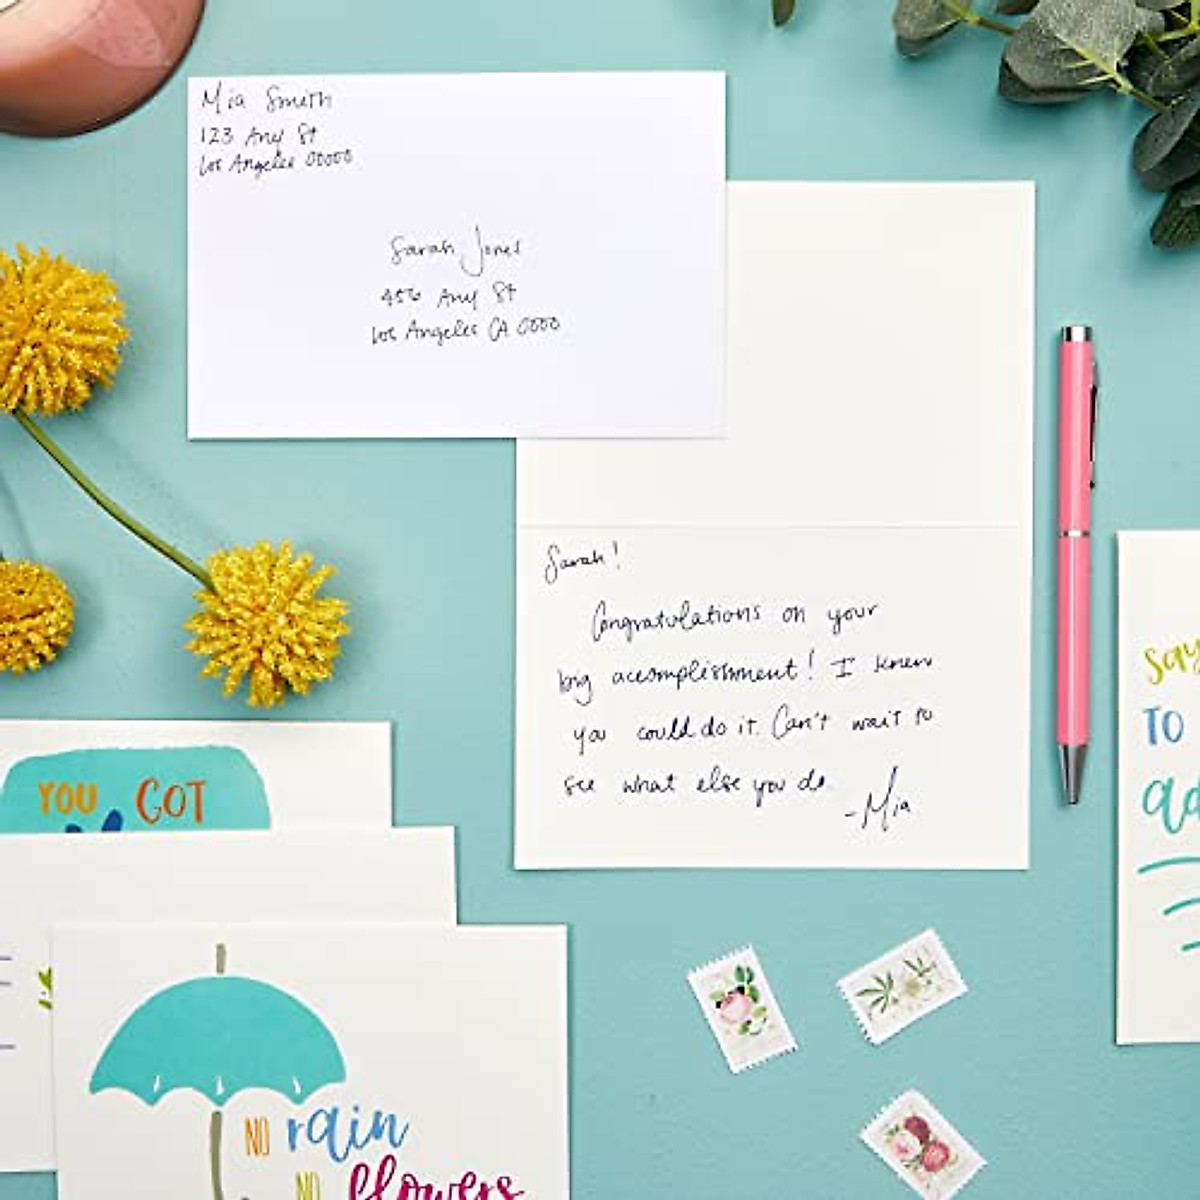 Mia Smith
123 Any St
Los Angeles 00000
Sarah Jones
456 Any St
Los Angeles CA 0000
Sarah!
Congratulations on your
big accomplishment! I knew
you could do it. Can't wait to
see what else you do.
-Mia
YOU GOT
NO rain
NO flowers
say
TO
ad